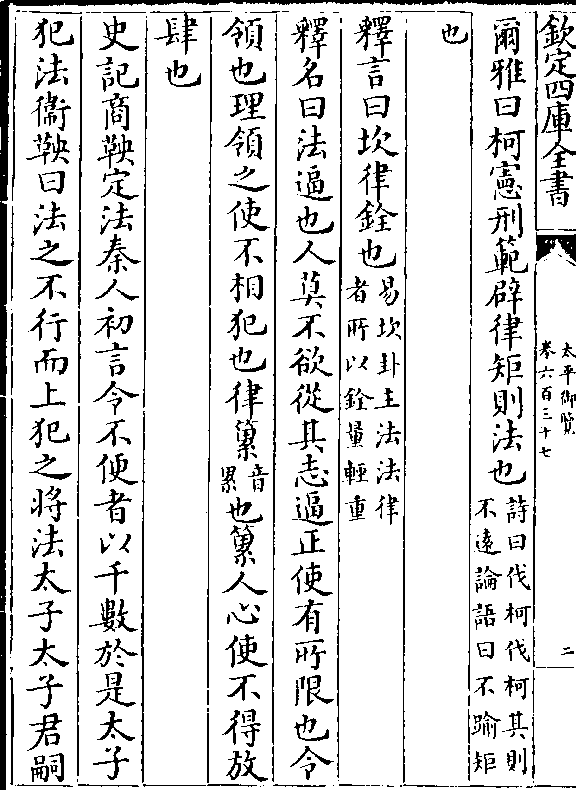 欽定四庫全書
太平御覽
卷六百三十七
二
爾雅曰柯憲刑範辟律矩則法也詩曰伐柯伐柯其則不遠論語曰不踰矩
也
釋言曰坎律銓也易坎卦主法法律者所以銓量輕重
釋名曰法逼也人莫不欲從其志逼正使有所限也令
領也理領之使不相犯也律纍音累也纍人心使不得放
肆也
史記商鞅定法秦人初言令不便者以千數於是太子
犯法衞鞅曰法之不行而上犯之將法太子太子君嗣